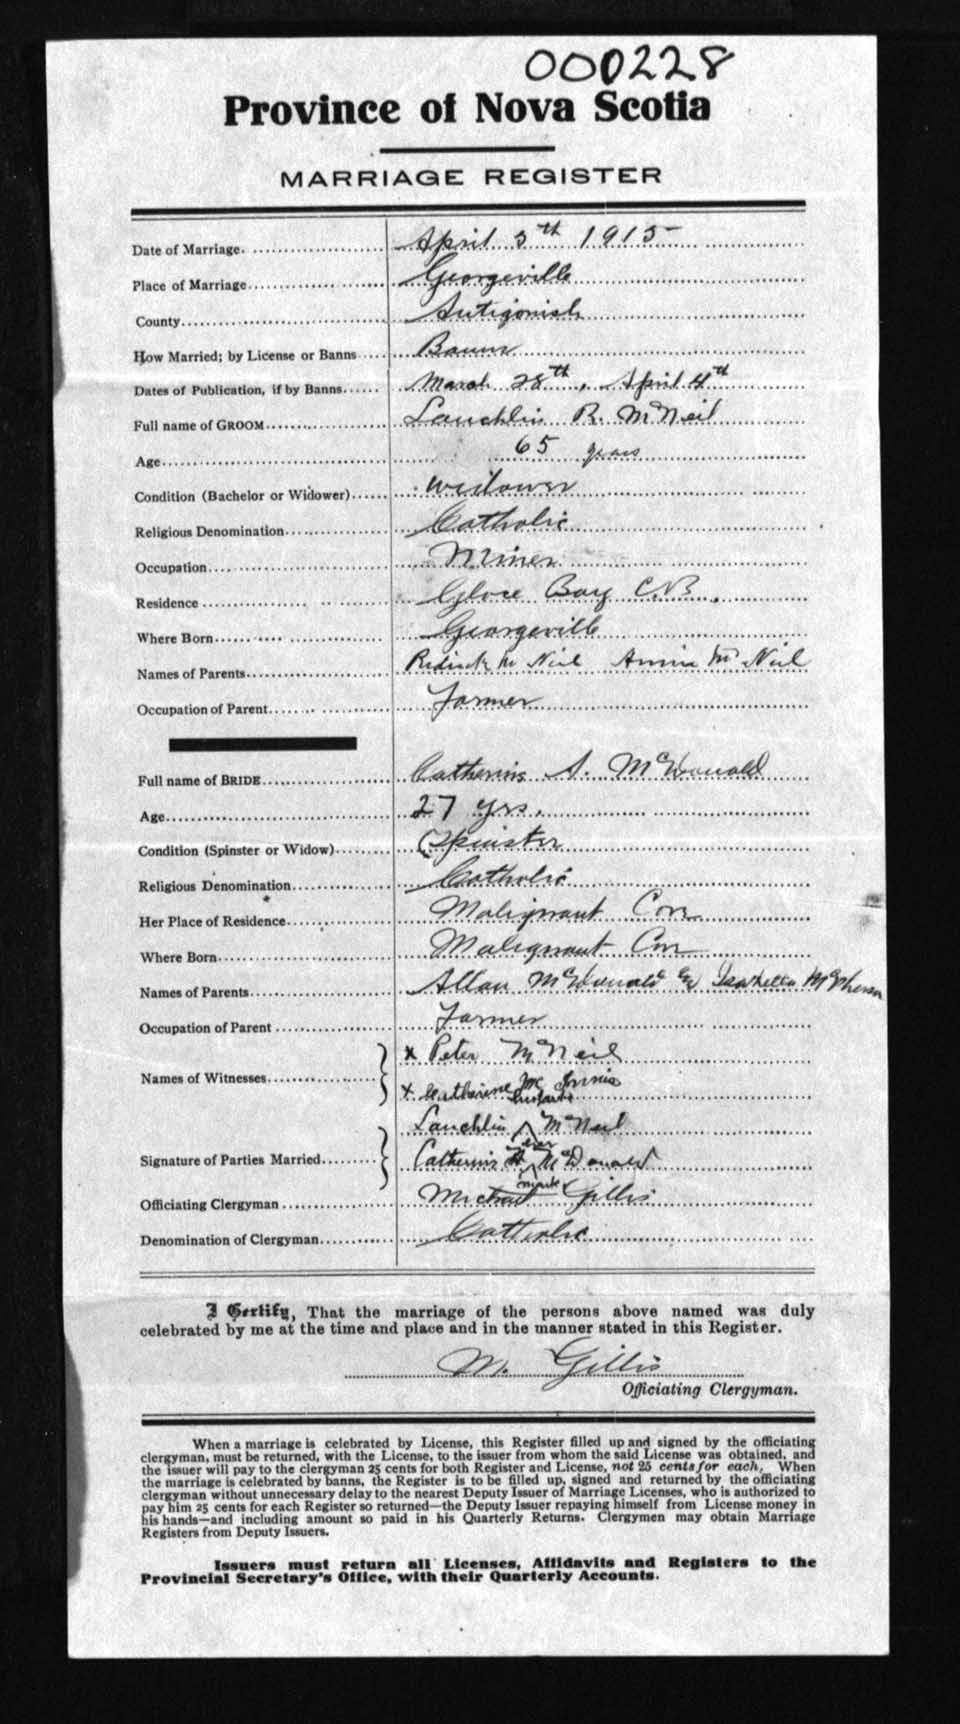 000228
Province of Nova Scotia
MARRIAGE REGISTER
Date of Marriage April 5th 1915
Place of Marriage Georgeville
County Antigonish
How Married; by License or Banns Banns
Dates of Publication, if by Banns March 28th, April 4th
Full name of GROOM Lauchlin R. McNeil
Age 65 years
Condition (Bachelor or Widower) Widower
Religious Denomination Catholic
Occupation Miner
Residence Glace Bay C.B.
Where Born Georgeville
Names of Parents McNeil Annie McNeil
Occupation of Parent Farmer
Full name of BRIDE Catherine A. McDonald
Age 27 yrs.
Condition (Spinster or Widow) Spinster
Religious Denomination Catholic
Her Place of Residence Malignant Cove
Where Born Malignant Cove
Names of Parents Allan McDonald & Isabella McPherson
Occupation of Parent Farmer
Names of Witnesses x Peter McNeil
x Catherine McInnis
Lauchlin McNeil
Signature of Parties Married Catherine McDonald
mark
Officiating Clergyman Michael Gillis
Denomination of Clergyman Catholic
I Certify, That the marriage of the persons above named was duly
celebrated by me at the time and place and in the manner stated in this Register.
M. Gillis
Officiating Clergyman.
When a marriage is celebrated by License, this Register filled up and signed by the officiating
clergyman, must be returned, with the License, to the issuer from whom the said License was obtained, and
the issuer will pay to the clergyman 25 cents for both Register and License, not 25 cents for each, When
the marriage is celebrated by banns, the Register is to be filled up, signed and returned by the officiating
clergyman without unnecessary delay to the nearest Deputy Issuer of Marriage Licenses, who is authorized to
pay him 25 cents for each Register so returned—the Deputy Issuer repaying himself from License money in
his hands—and including amount so paid in his Quarterly Returns. Clergymen may obtain Marriage
Registers from Deputy Issuers.
Issuers must return all Licenses, Affidavits and Registers to the
Provincial Secretary's Office, with their Quarterly Accounts.